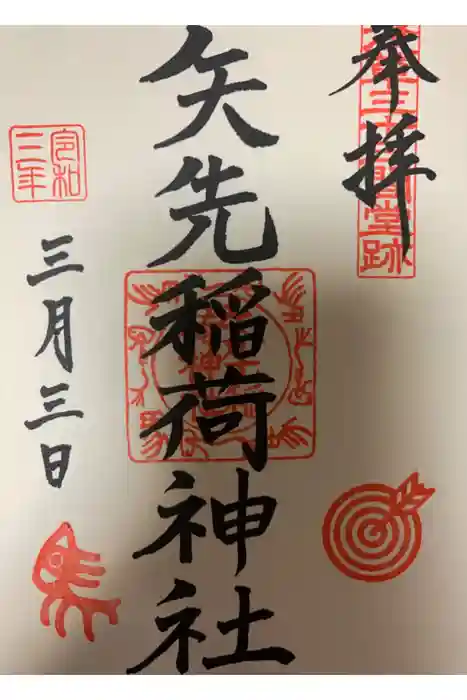 奉拝
三十三間堂跡
矢先稲荷神社
令和三年
三月三日